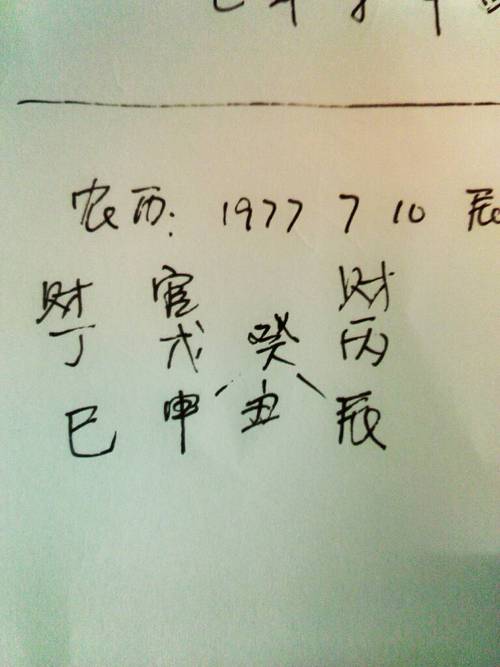 农历: 1977 7 10 辰
财 官 财
丁 戊 癸 丙
巳 申 丑 辰